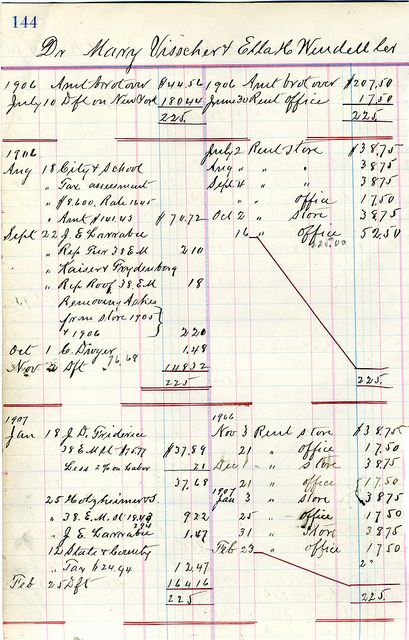 144
Dr Mary Visscher & Ella H Wendell Cr
1906 Amt brot over $44.56 1906 Amt brot over $207,50
July 10 Dft on New York 180 44 June 30 Rent office 17,50
225. 225.
1906 July 2 Rent Store $38 75
Aug 18 City & School Aug " " " 38 75
" Tax assessment Sept 4 " " 38 75
" $8,600. Rate 1645 " " office 17 50
" Amt $141.43 $70,72 Oct 2 " Store 38 75
Sept 22 J. E. Larrabee 16 " office 52,50
" Rep Pier 38 E M 2 10 225.00
" Kaiser &
" Rep Roof 38 E M 18
Removing Ashes
from store 1905
& 1906 2 20
Oct 1 C. Dwyer 1.48
Nov 2 Dft 76,68 148 32
225 225.
1907 1906
Jan 18 J. D. Nov 3 Rent store $38 75
38 E M $37,89 21 " office 17,50
Less 2% on labor 21 Dec 1 " store 38 75
37,68 21 " office 17 50
1907
25 Holzheimer & S. Jan 3 " Store 38 75
" 38 E. M. 9 22 25 " office 17 50
" J. E. Larrabee 1.47 31 " Store 38 75
12 State & County Feb 23 " office 17 50
" Tax $24.94 12 47
Feb 25 Dft 164 16
225 225.